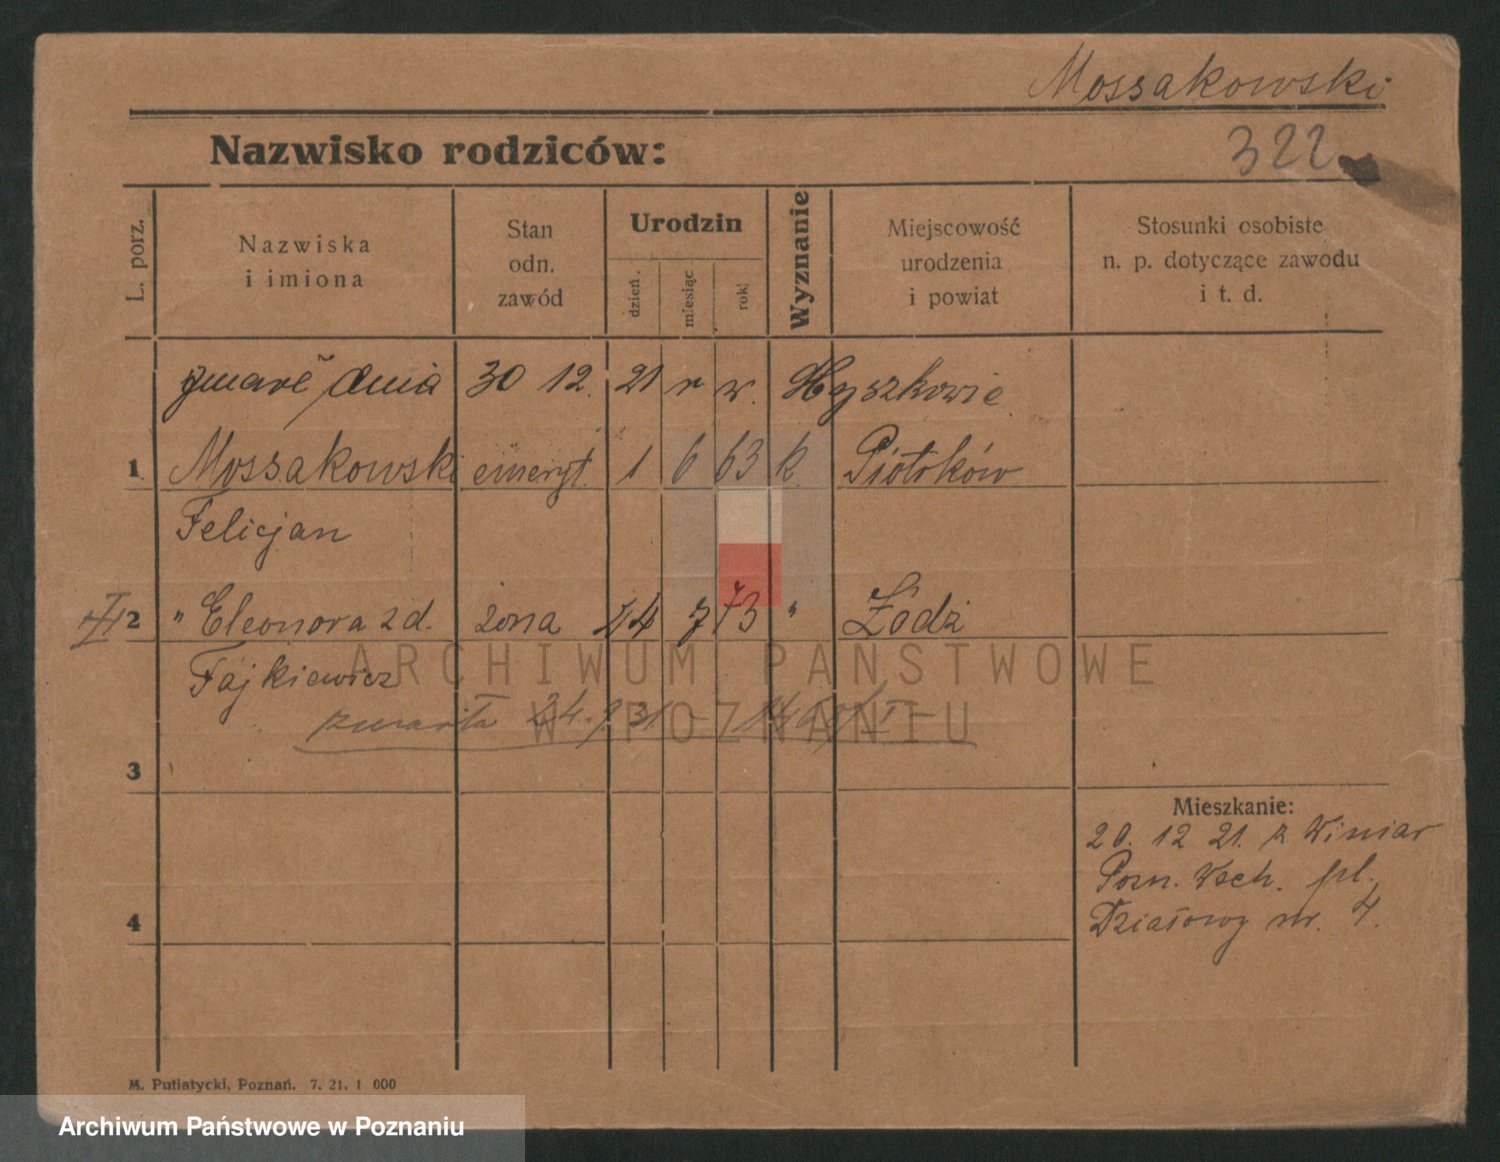 Mossakowski
322
Nazwisko rodziców:
L. porz.
Nazwiska
i imiona
Stan
odn.
zawód
Urodzin
dzień.
miesiąc
rok
Wyznanie
Miejscowość
urodzenia
i powiat
Stosunki osobiste
n. p. dotyczące zawodu
i t. d.
dnia 30 12. 21 r w.
1 Mossakowski emeryt. 1 6 63 k Piotrków
Felicjan
2 " Eleonora zd. żona 7 73 " Łódź
Fajkiewicz
zmarła
3
Mieszkanie:
20. 12 21. z Winiar
Pozn. Wsch. pl.
4 Działowy nr. 4.
M. Putiatycki, Poznań. 7. 21. 1 000
ARCHIWUM PAŃSTWOWE
W POZNANIU
Archiwum Państwowe w Poznaniu